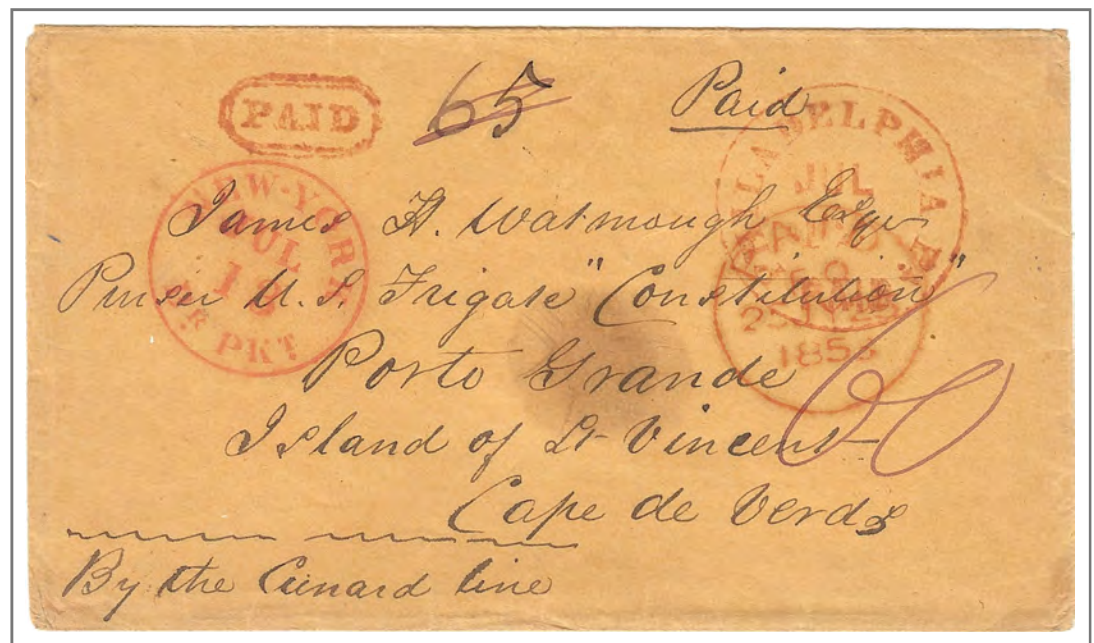 PAID
65
Paid
PHILADELPHIA Pa.
JUL
NEW-YORK
JUL
BR. PKT
PAID
1853
James H. Watmough Esqr
Purser U.S. Frigate "Constitution"
Porto Grande
Island of St Vincent
Cape de Verds
60
By the Cunard line